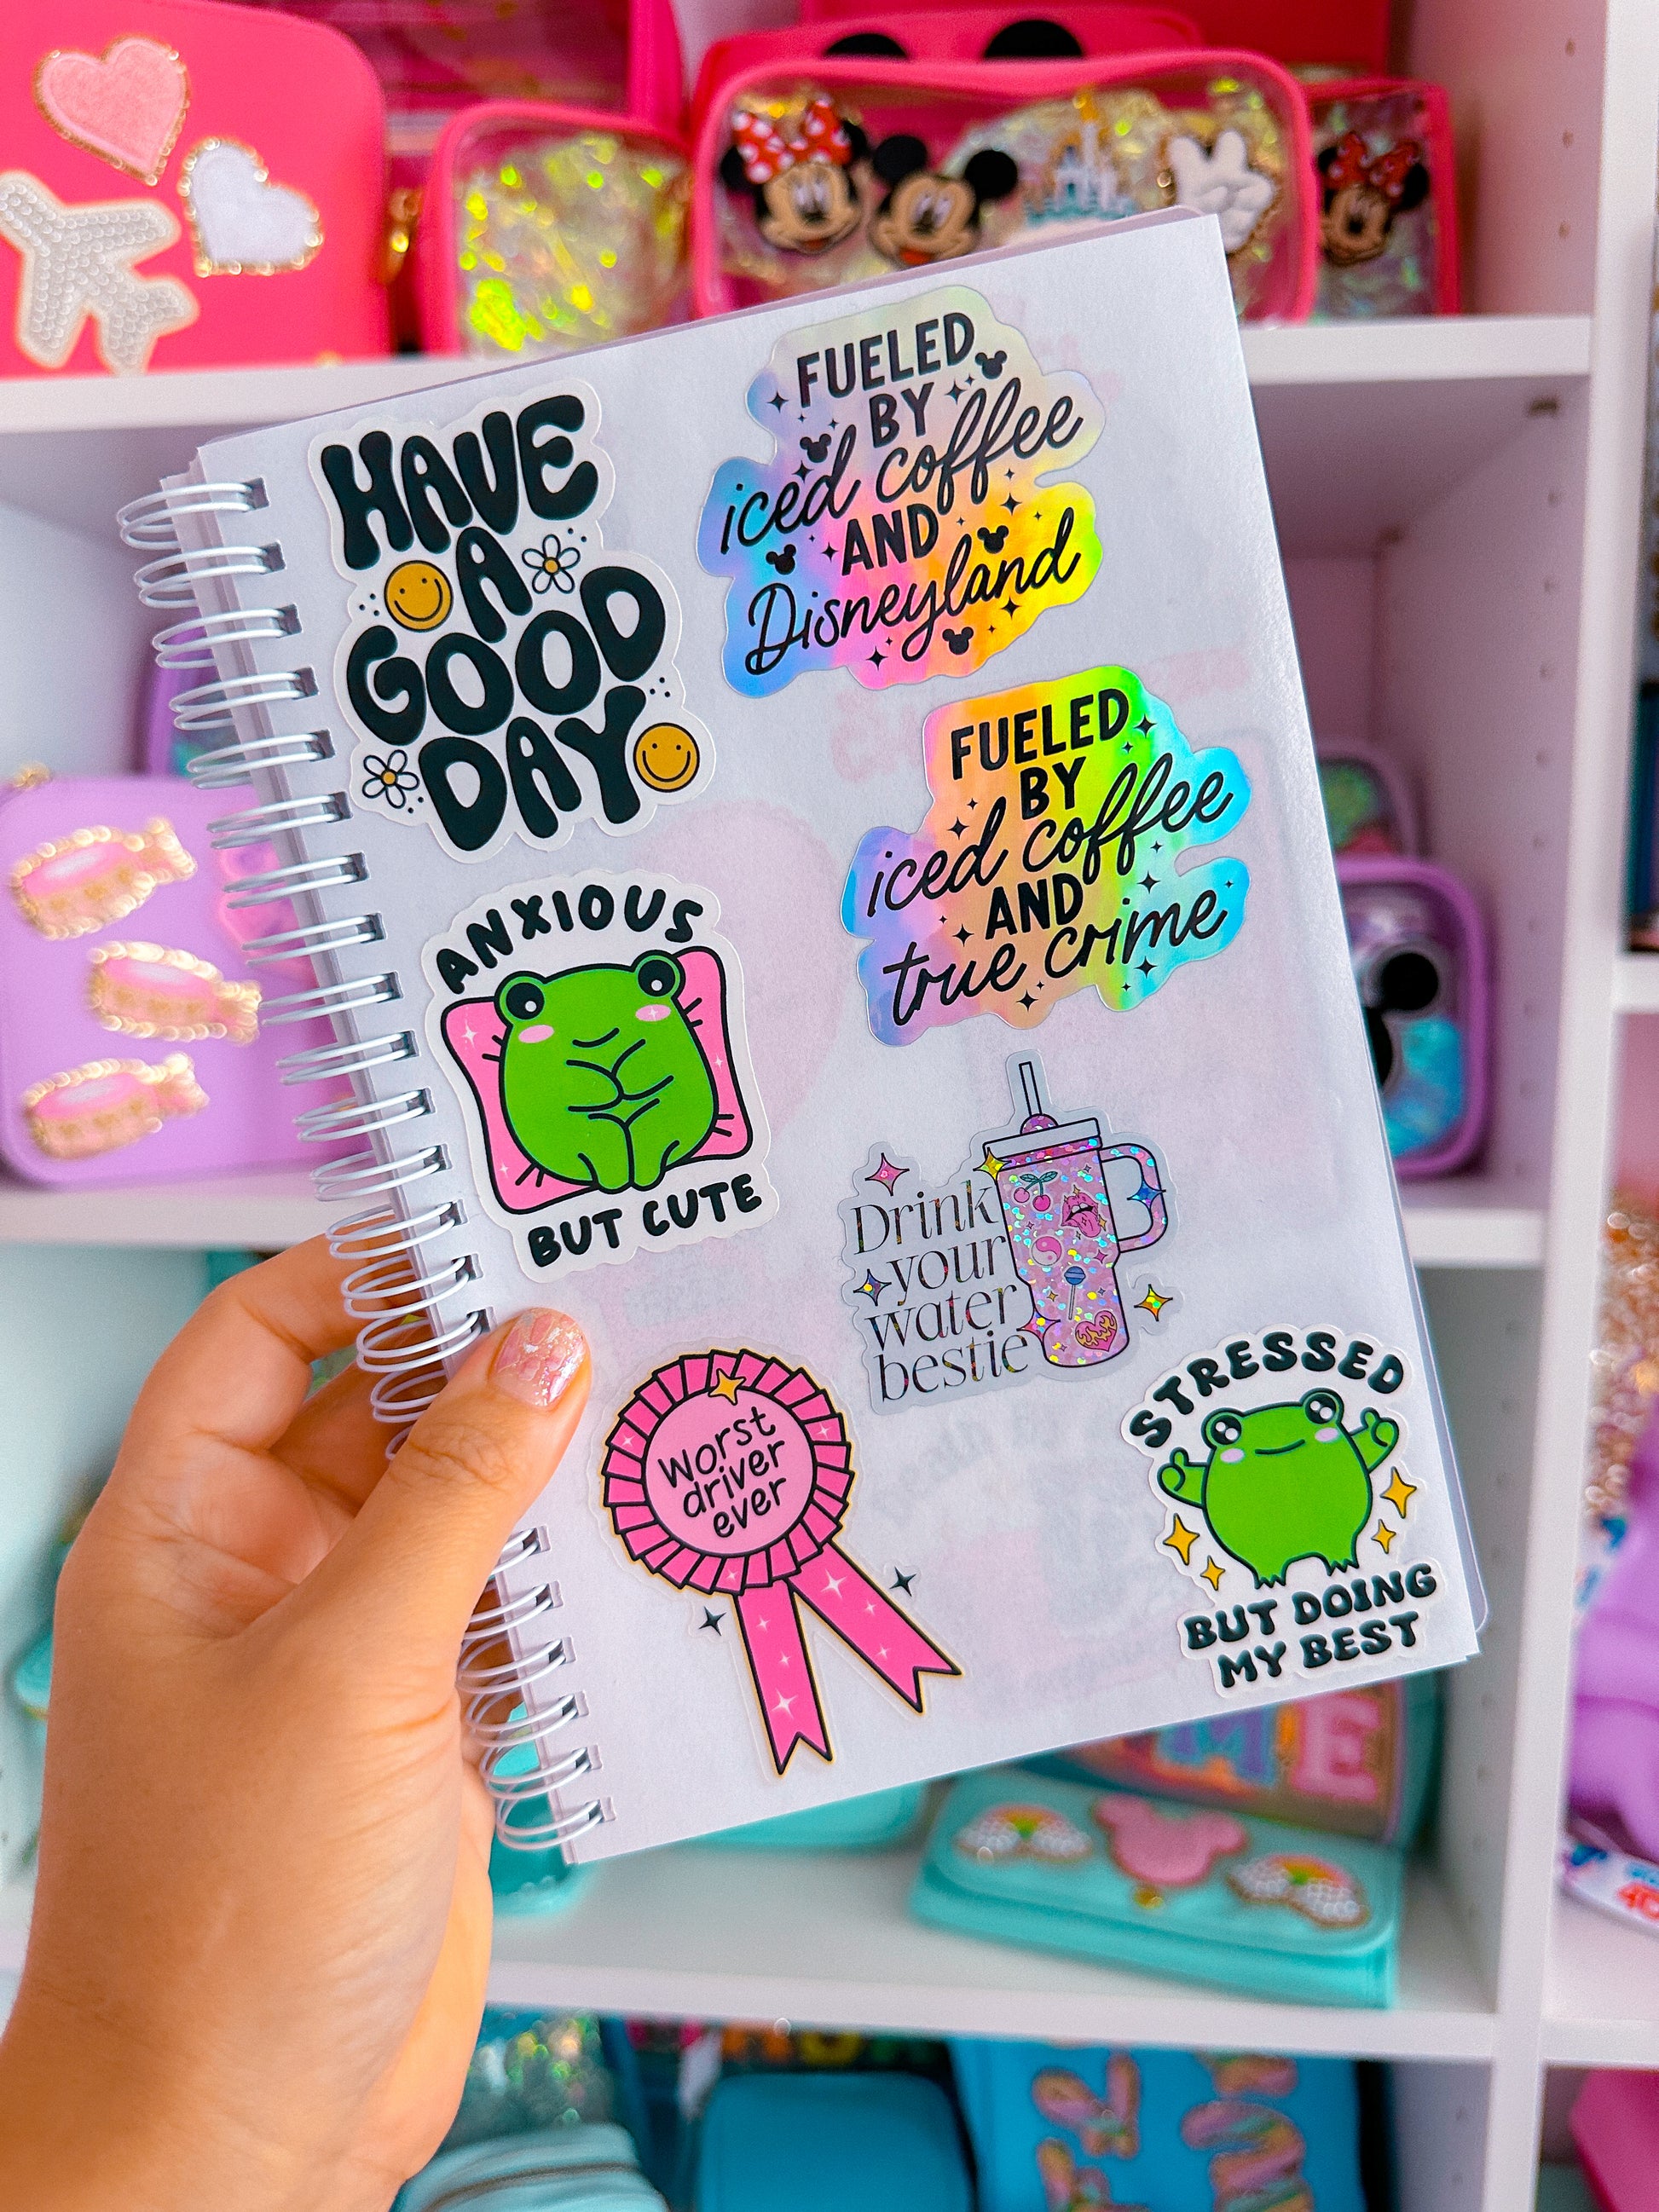 HAVE
A
GOOD
DAY
FUELED
BY
iced coffee
AND
Disneyland
FUELED
BY
iced coffee
AND
true crime
ANXIOUS
BUT CUTE
Drink
your
water
bestie
Worst
driver
ever
STRESSED
BUT DOING
MY BEST